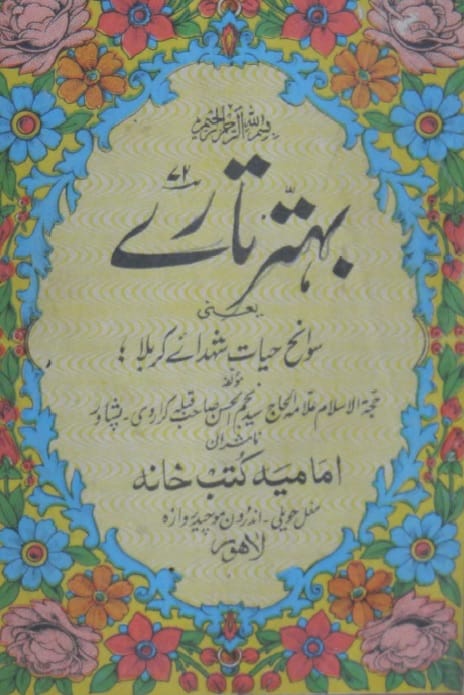 بسم اللہ الرحمٰن الرحیم
۷۲
بہتّر تارے
یعنی
سوانح حیات شہدائے کربلا ؛
مؤلفہ
حجۃ الاسلام علامہ الحاج سید نجم الحسن صاحب قبلہ کراروی - پشاور
ناشران
امامیہ کتب خانہ
مغل حویلی - اندرون موچیدروازہ
لاہور